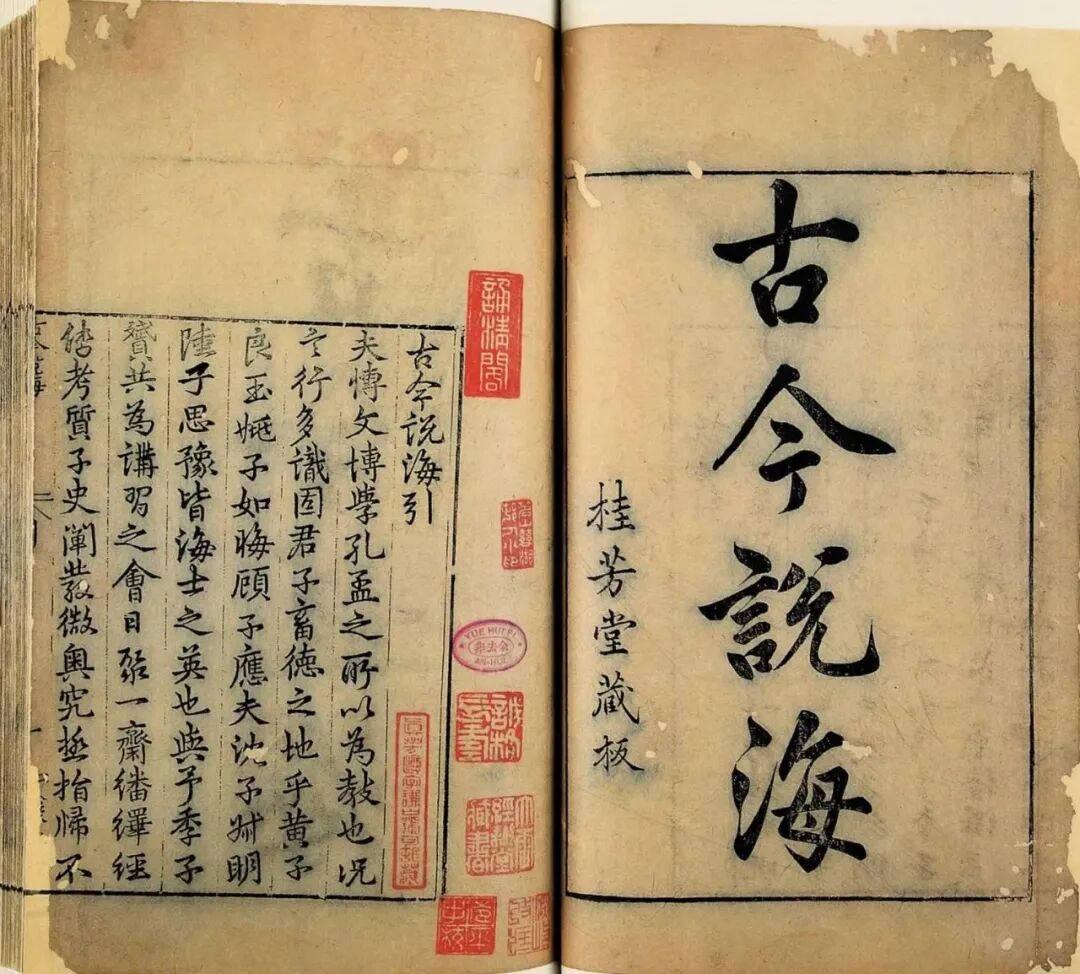 古今說海
桂芳堂藏板
誦清閣
大雷經鋤堂藏書
古今說海引
夫博文博學孔孟之所以為教也况
言行多識固君子畜德之地乎黃子
良玉姚子如晦顧子應夫沈子叔明
陸子思豫皆海士之英也與予季子
共為講習之會日聚一齋繙繹經
傳考質子史闡發微奧究極指歸不